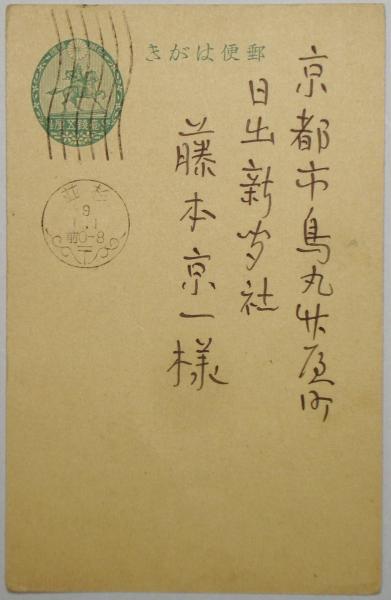 郵便はがき
京都市烏丸竹屋町
日出新聞社
藤本京一様
9
1.1
前0-8